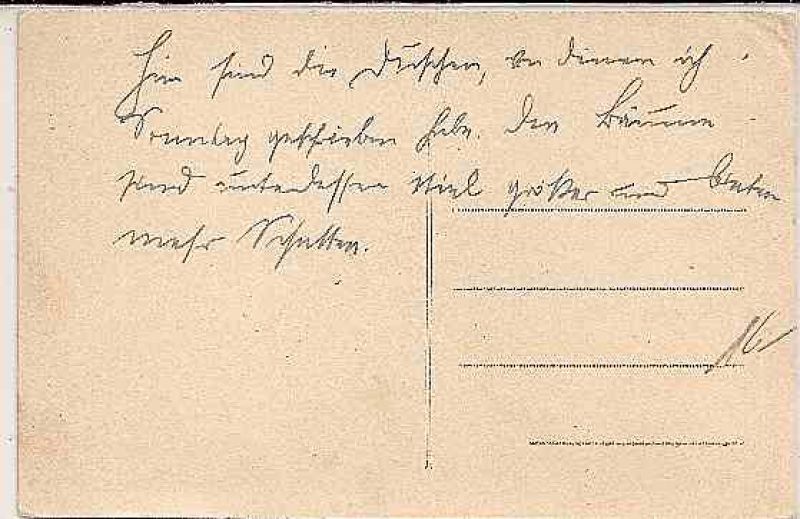 Hier sind die Duschen, von denen ich
Sonntag geschrieben habe. Die Bäume
sind unterdessen viel größer und bieten
mehr Schatten.
16